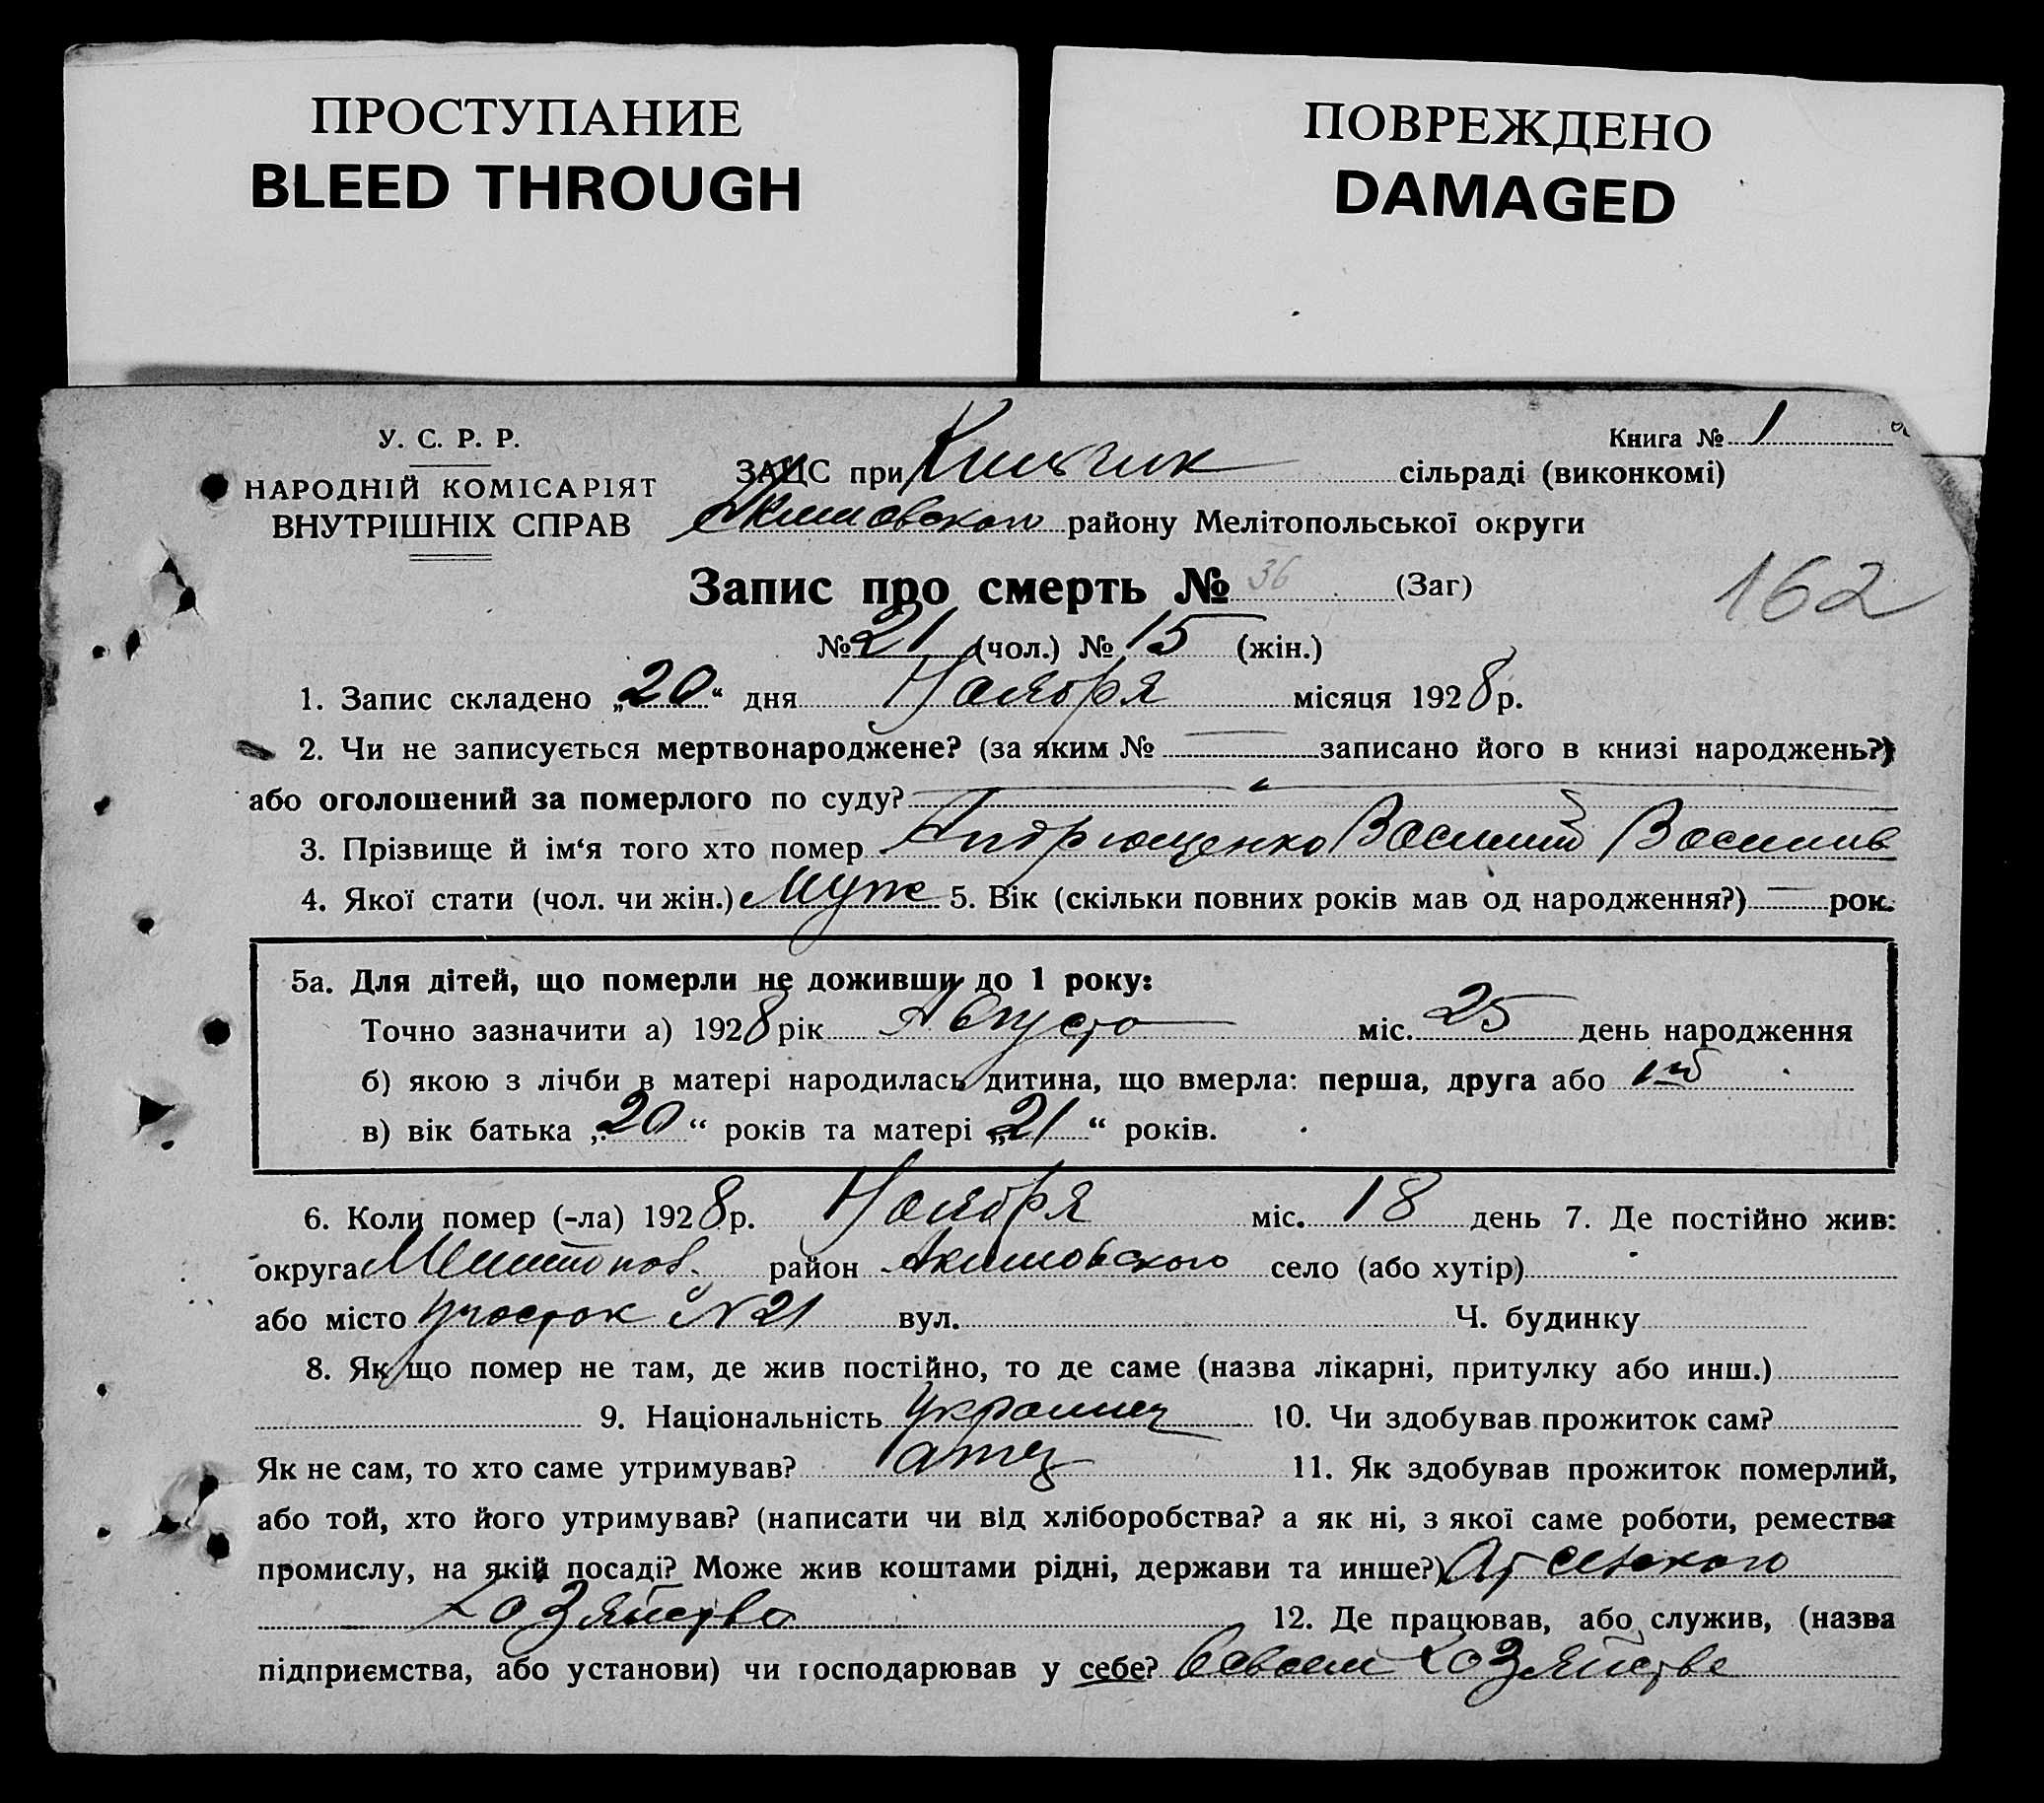 ПРОСТУПАНИЕ
BLEED THROUGH
ПОВРЕЖДЕНО
DAMAGED
У. С. Р. Р.
НАРОДНІЙ КОМІСАРІЯТ
ВНУТРІШНІХ СПРАВ
Книга № 1
ЗАЦС при сільраді (виконкомі)
Акимовского району Мелітопольської округи
Запис про смерть № 36 (Заг)
162
№ 21 (чол.) № 15 (жін.)
1. Запис складено „20“ дня Ноября місяця 1928 р.
2. Чи не записується мертвонароджене? (за яким № — записано його в книзі народжень?)
або оголошений за померлого по суду? —
3. Прізвище й ім‘я того хто помер Андрющенко Василий Василив
4. Якої стати (чол. чи жін.) Муж 5. Вік (скільки повних років мав од народження?) — рок.
5а. Для дітей, що померли не доживши до 1 року:
Точно зазначити а) 1928 рік Августа міс. 25 день народження
б) якою з лічби в матері народилась дитина, що вмерла: перша, друга або 1й
в) вік батька „20“ років та матері „21“ років.
6. Коли помер (-ла) 1928 р. Ноября міс. 18 день 7. Де постійно жив:
округа Мелитопол. район Акимовского село (або хутір)
або місто Участок №21 вул. Ч. будинку
8. Якщо помер не там, де жив постійно, то де саме (назва лікарні, притулку або инш.)
9. Національність Украинец 10. Чи здобував прожиток сам?
Як не сам, то хто саме утримував? атец 11. Як здобував прожиток померлий,
або той, хто його утримував? (написати чи від хліборобства? а як ні, з якої саме роботи, ремества
промислу, на якій посаді? Може жив коштами рідні, держави та инше?) От сельского
хозяйства 12. Де працював, або служив, (назва
підприємства, або установи) чи господарював у себе? Всвоем хозяйстве